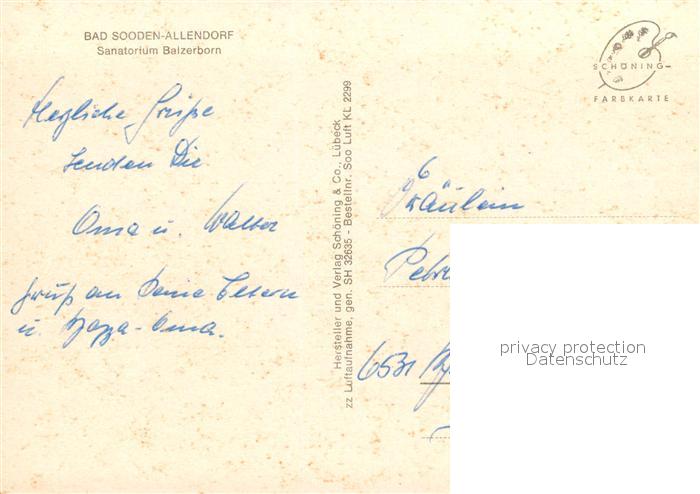 BAD SOODEN-ALLENDORF
Sanatorium Balzerborn
Herzliche Grüße
senden Dir
Oma u. Walter
Gruß an Deine Eltern
u. -Oma.
Hersteller und Verlag Schöning & Co., Lübeck
zz Luftaufnahme, gen. SH 32635 - Bestellnr. Soo Luft KL 2299
SCHÖNING-
FARBKARTE
Fräulein
Petra
6531
privacy protection
Datenschutz